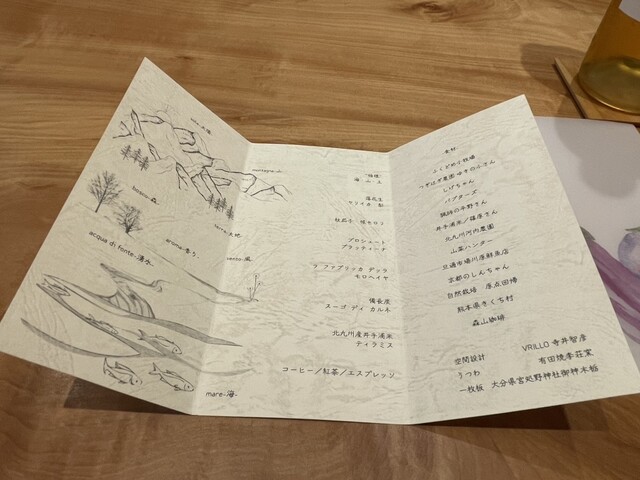 montagna-山-
bosco-森-
terra-大地-
acque di fonte-湧水-
aroma-香り-
vento-風
mare-海-
海 山 土
落花生
プロシュート
ブラッティーナ
ラ ファブリッカ デッラ
モロヘイヤ
備長炭
スーゴ ディ カルネ
北九州産井手浦米
ティラミス
コーヒー／紅茶／エスプレッソ
食材
ふくどめ小牧場
つずはぎ農園 ゆきのふさん
しげちゃん
バブターズ
猟師の平野さん
井手浦米／篠原さん
北九州河内農園
山菜ハンター
旦過市場川原鮮魚店
京都のしんちゃん
自然栽培 原点回帰
熊本県きくち村
森山珈琲
空間設計 VRILLO 寺井智彦
うつわ 有田焼李荘窯
一枚板 大分県宮処野神社御神木栃